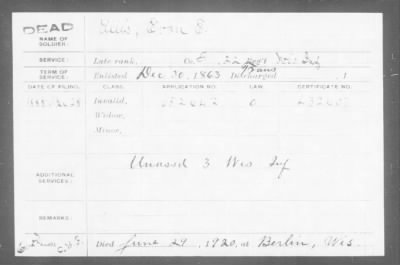 DEAD
NAME OF SOLDIER:
SERVICE: Late rank, Co. E, 22 Reg't Wis Inf
TERM OF SERVICE: Enlisted Dec 30, 1863 Discharged , 1
Trans
DATE OF FILING. CLASS. APPLICATION NO. LAW. CERTIFICATE NO.
Invalid, 0
Widow,
Minor,
ADDITIONAL SERVICES: Unassd 3 Wis Inf
REMARKS:
Died June 29, 1920, at Berlin, Wis.